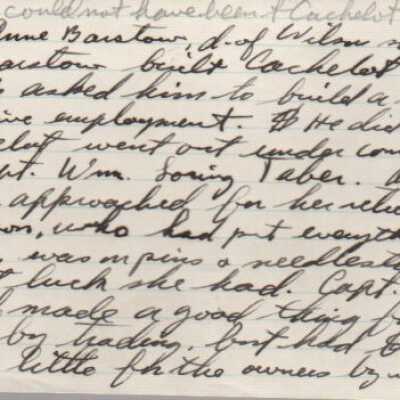 could not have been + Cachelot
Anne Barstow, d. of Wilson
Barstow built Cachelot
asked him to build a
employment. He did
went out under com
Wm. Loring Taber.
approached for her
who had put everyth
was on pins & needles
luck she had. Capt.
made a good thing
by trading, but had
little for the owners by